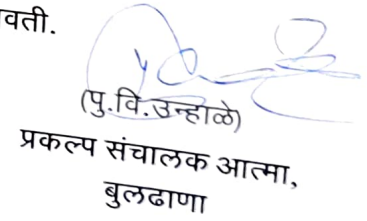 वती.
(पु.वि.उन्हाळे)
प्रकल्प संचालक आत्मा,
बुलढाणा